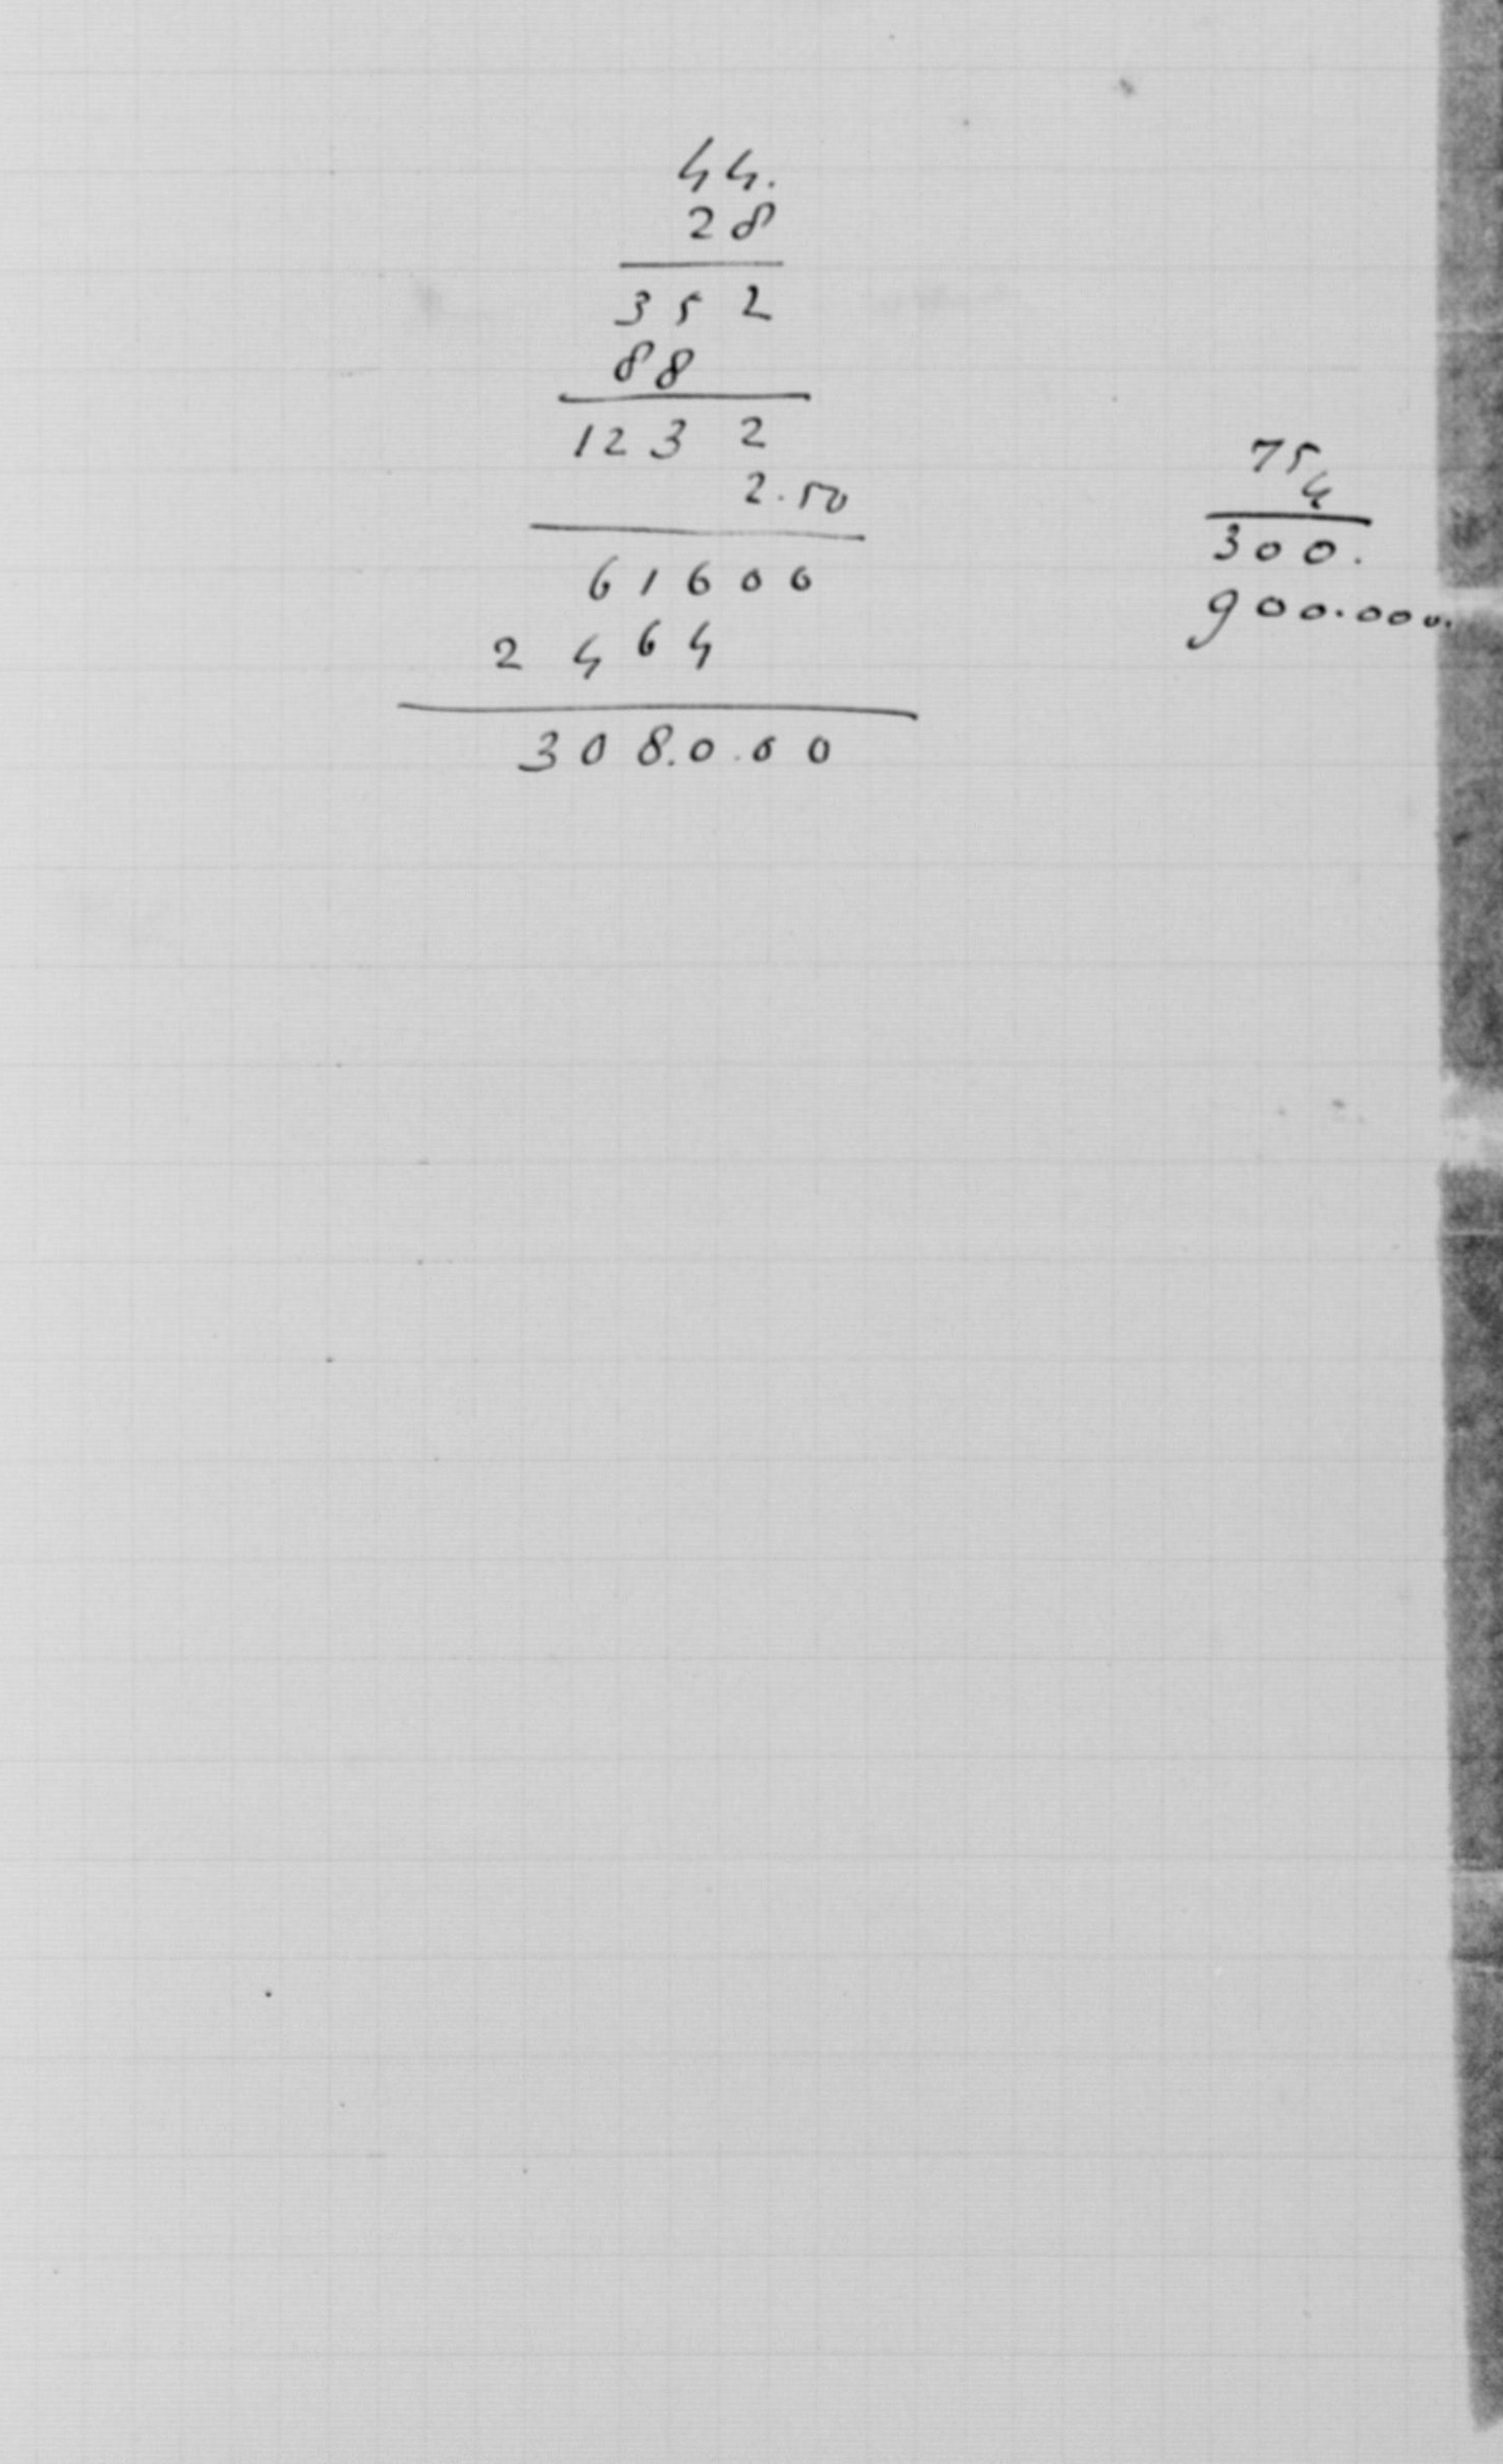 44.
28
352
88
1232
2.50
61600
2464
308.0.00
75
4
300.
900.000.